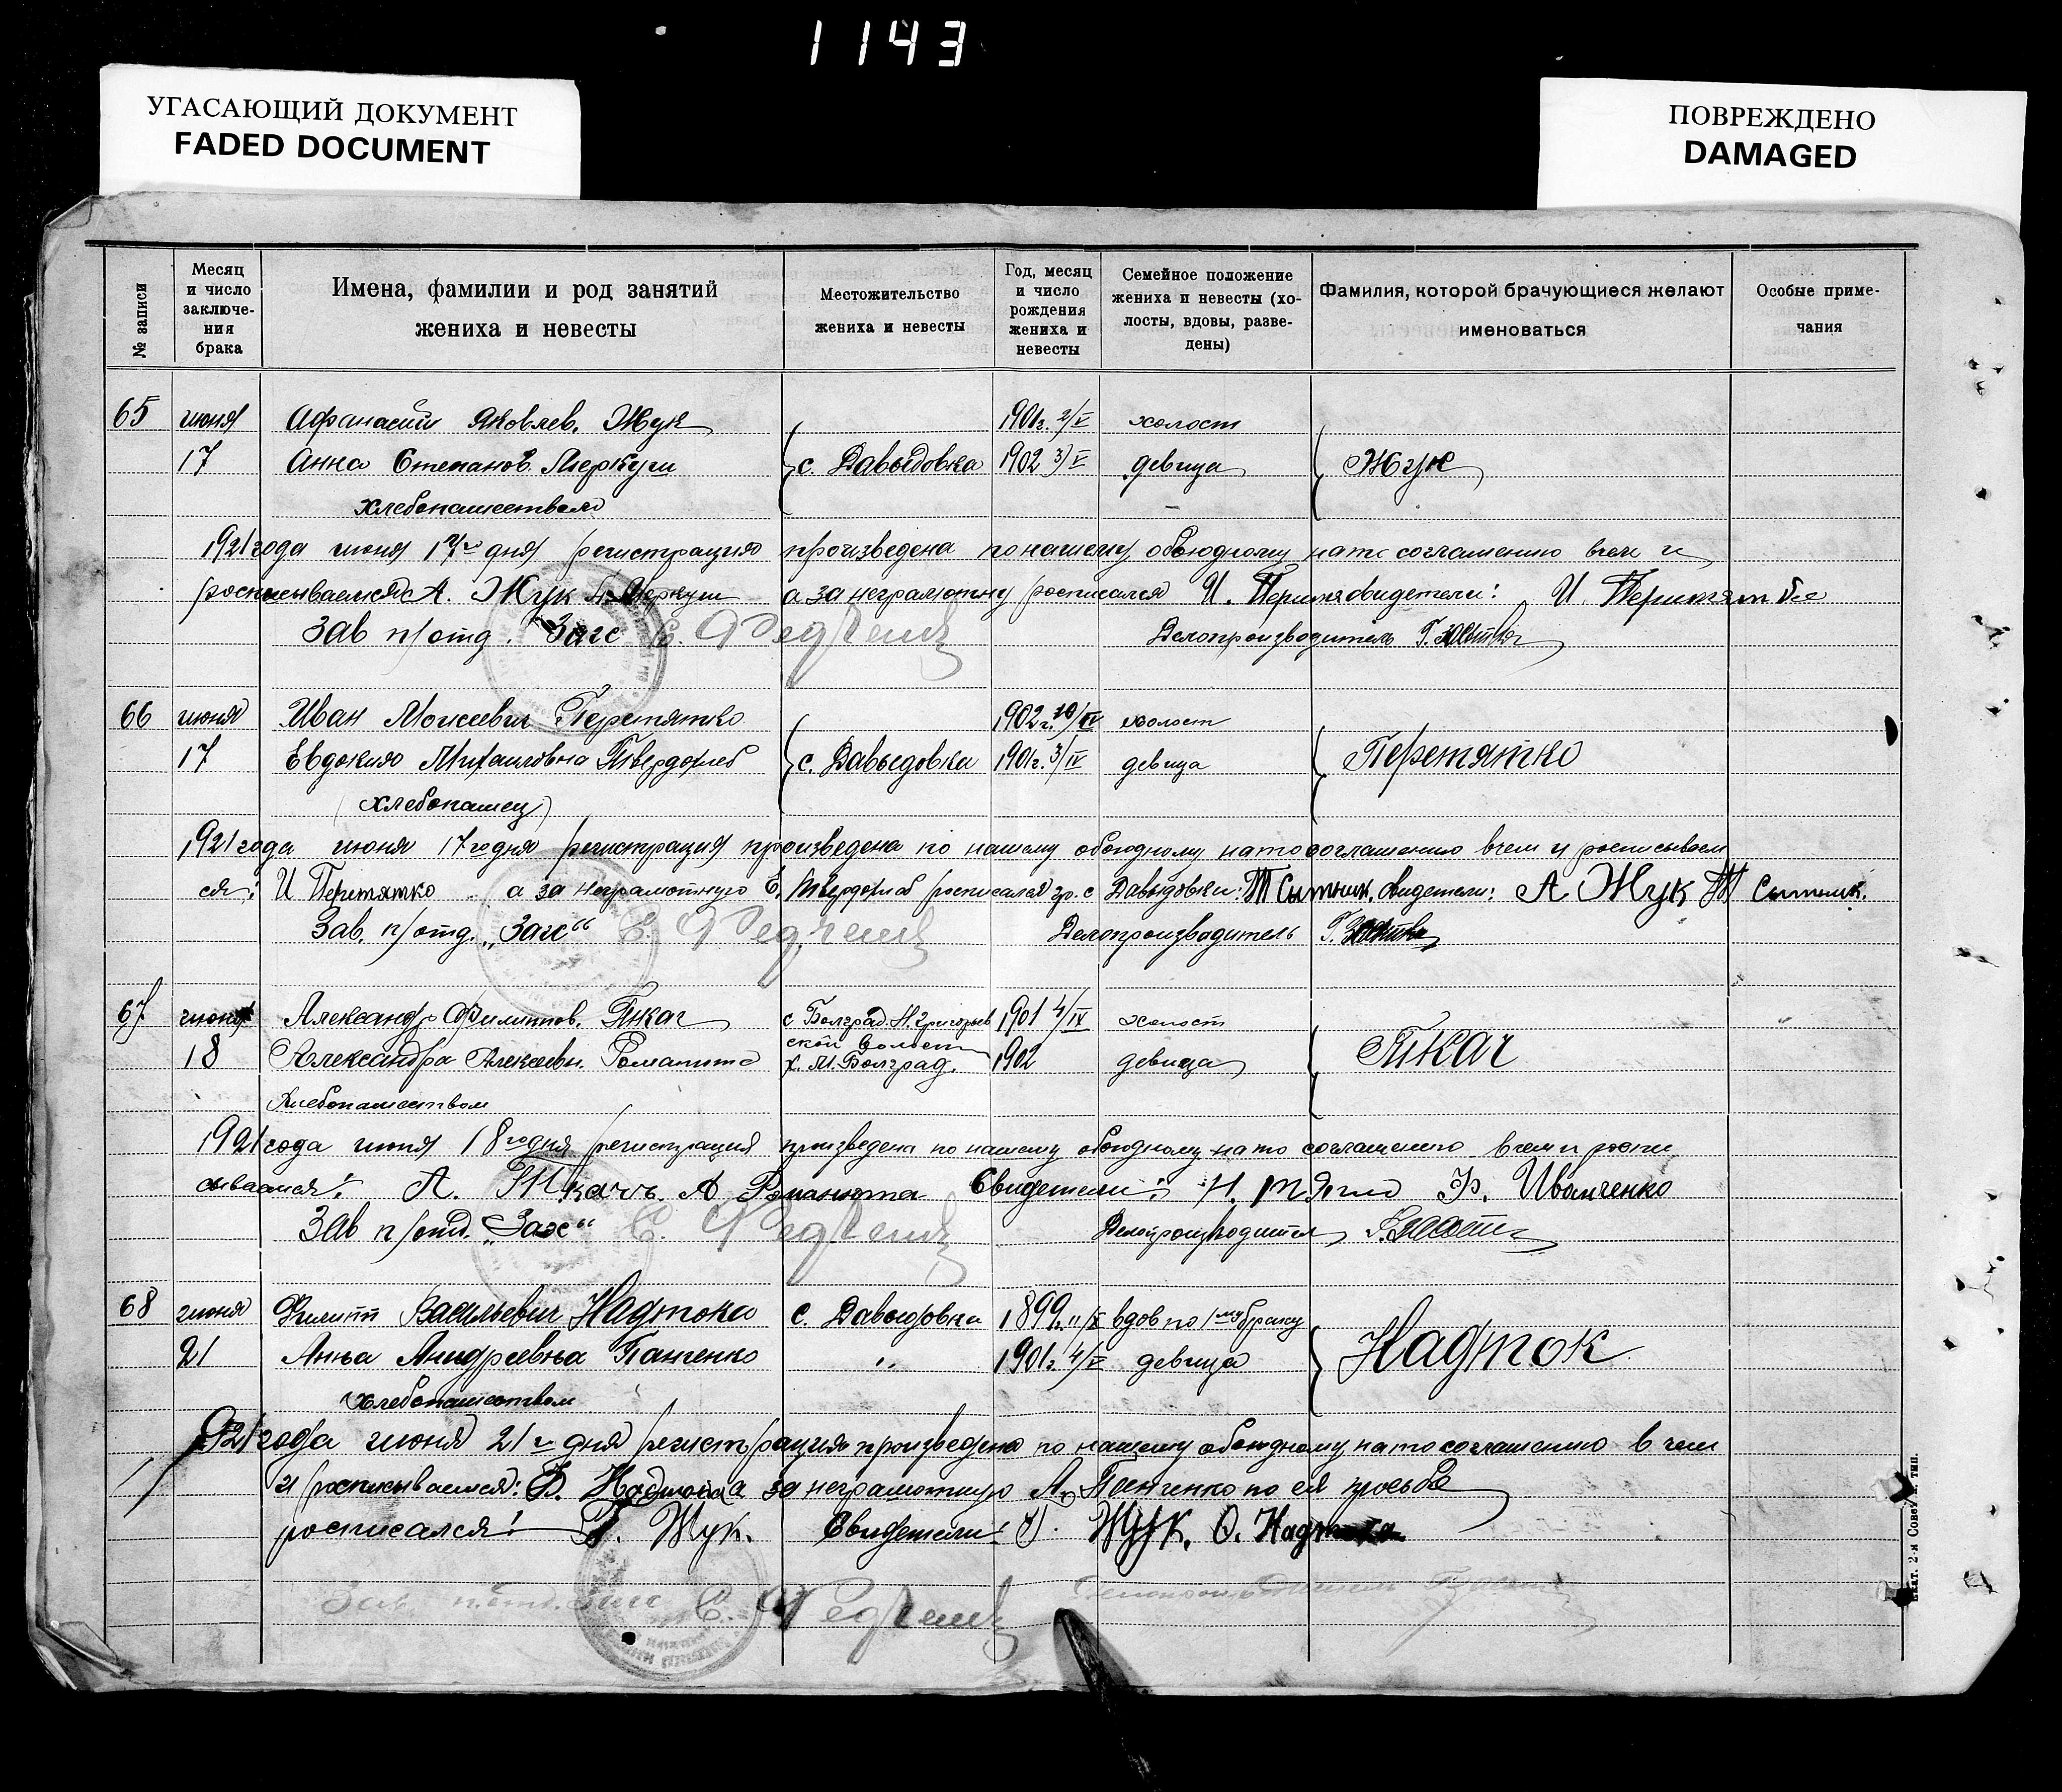 1143
УГАСАЮЩИЙ ДОКУМЕНТ
FADED DOCUMENT
ПОВРЕЖДЕНО
DAMAGED
№ записи
Месяц и число заключения брака
Имена, фамилии и род занятий жениха и невесты
Местожительство жениха и невесты
Год, месяц и число рождения жениха и невесты
Семейное положение жениха и невесты (холосты, вдовы, разведены)
Фамилия, которой брачующиеся желают именоваться
Особые примечания
65 июня Афанасий Яковлев. Жук 1901г. 2/V холост
17 Анна Степанов. Меркуш с. Давыдовка 1902 3/V девица Жук
хлебопашеством
1921 года июня 17го дня регистрация произведена по нашему обоюдному на то согласению в чем и
росписываемся А. Жук а за неграмотну росписался И. свидетели: И.
Зав п/отд. "Загс" Делопроизводитель
66 июня Иван Моисеевич Перетятко 1902г. 10/IV холост
17 Евдокия Михаиловна Твердохлеб с. Давыдовка 1901г. 3/IV девица Перетятко
(хлебопашец)
1921 года июня 17го дня регистрация произведена по нашему обоюдному на то согласению в чем и росписываем
ся: И Перетятко а за неграмотную Е. Твердохлеб росписался гр. с Давыдовки: Т Сытник. Свидетели: А Жук Т Сытник.
Зав. п/отд. „Загс“ Делопроизводитель
67 июня Александр Филиппов. Ткач с Болград. Н. Григорьев 1901 4/IV холост
ской волости
18 Александра Алексеевн. Романюта х. М. Болград. 1902 девица Ткач
Хлебопашеством
1921 года июня 18го дня регистрация произведена по нашему обоюдному на то согласению в чем и роспи
сываемся: А. Ткачъ. А Романюта Свидетели: Н. Ф. Иванченко
Зав п/отд. „Загс“ Делопроизводитель
68 июня Филипп Васильевич Надтока с. Давыдовка 1899г. 11/X вдов по 1му браку
21 Анна Андреевна Панченко " 1901г. 4/V девица Надток
хлебопашеством
1921 года июня 21го дня регистрация произведена по нашему обоюдному на то согласению в чем
и росписываемся: Ф. Надтока а за неграмотную А. Панченко по ея просьбе
росписался: Г. Жук. Свидетели: Г. Жук. О. Надтока
Зав. п.отд. Загс Делопроизводитель